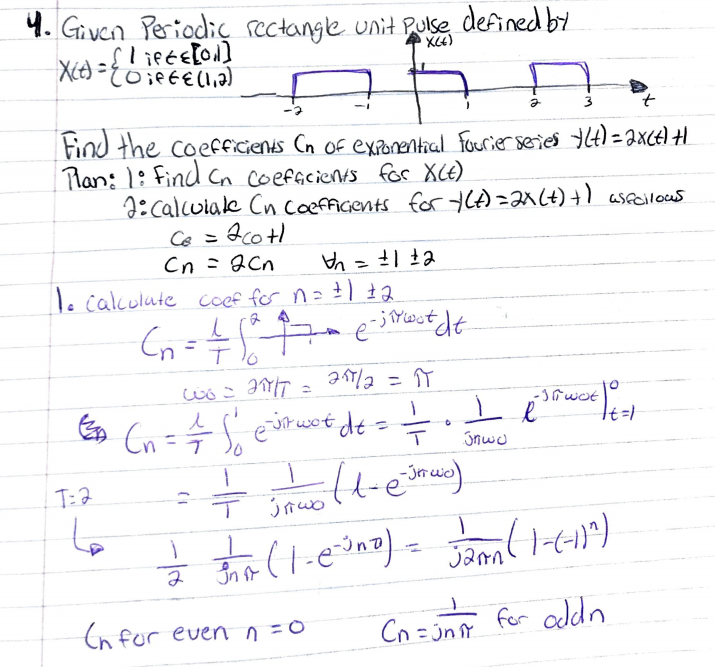 4. Given Periodic rectangle unit pulse defined by
x(t) = { 1 if t ∈ [0,1]
0 if t ∈ (1,2)
x(t)
1
-2 -1 1 2 3 t
Find the coefficients Cn of exponential Fourier series y(t) = 2x(t) +1
Plan: 1: Find Cn coefficients for X(t)
2: Calculate Cn coefficients for y(t) = 2x(t) +1 as follows
C0 = 2c0+1
Cn = 2Cn ∀n = ±1 ±2
1. Calculate coef for n = ±1 ±2
Cn = 1/T ∫_0^2 e^-jnω0t dt
ω0 = 2π/T = 2π/2 = π
Cn = 1/T ∫_0^1 e^-jnω0t dt = 1/T · 1/jnω0 e^-jnω0t |_{t=1}^0
T=2 = 1/T 1/jnω0 (1-e^-jnω0)
1/2 1/jnπ (1-e^-jnπ) = 1/j2πn (1-(-1)^n)
Cn for even n = 0 Cn = 1/jnπ for odd n